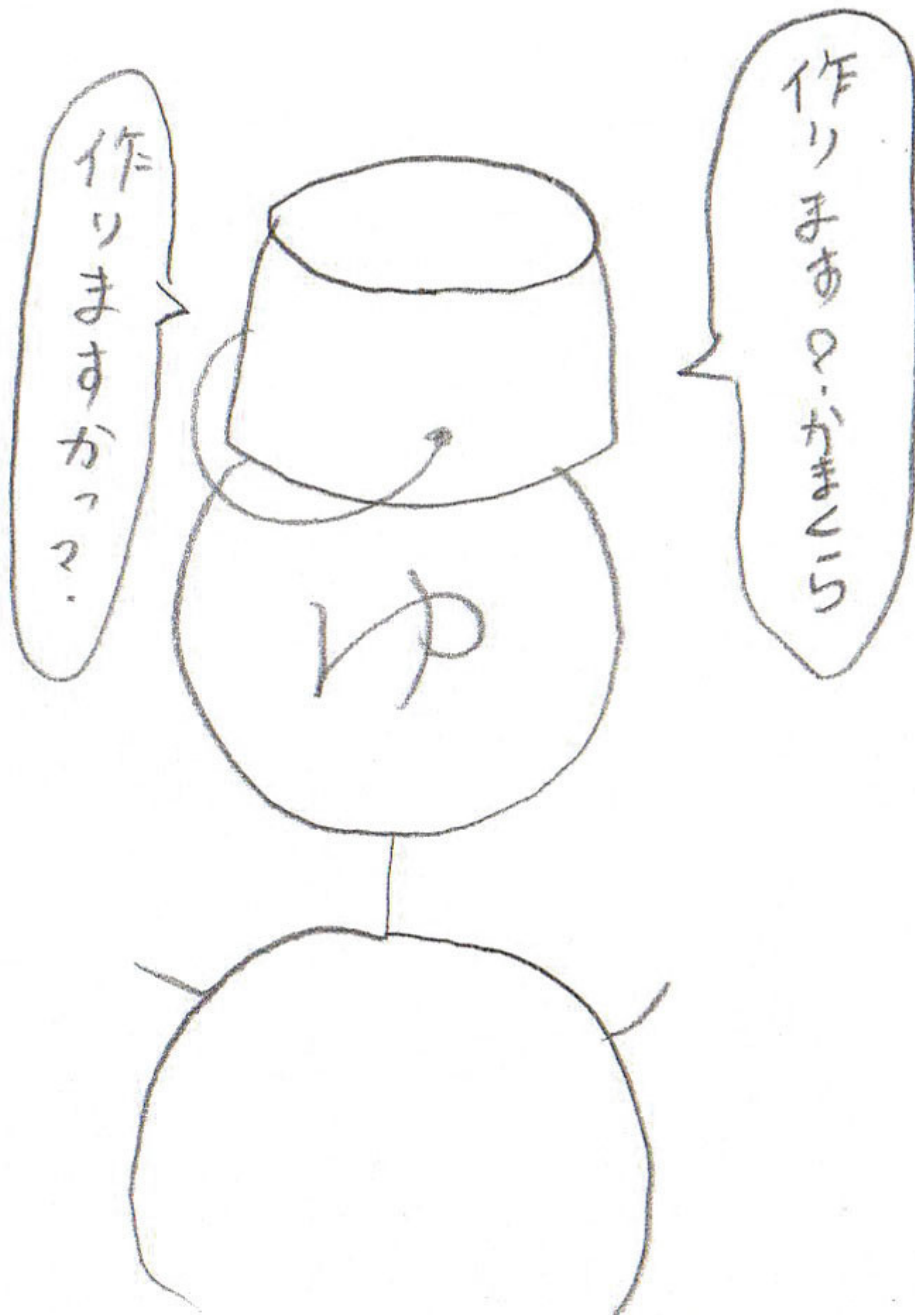 作ります?.かまくら
作りますかっ?.
ゆ